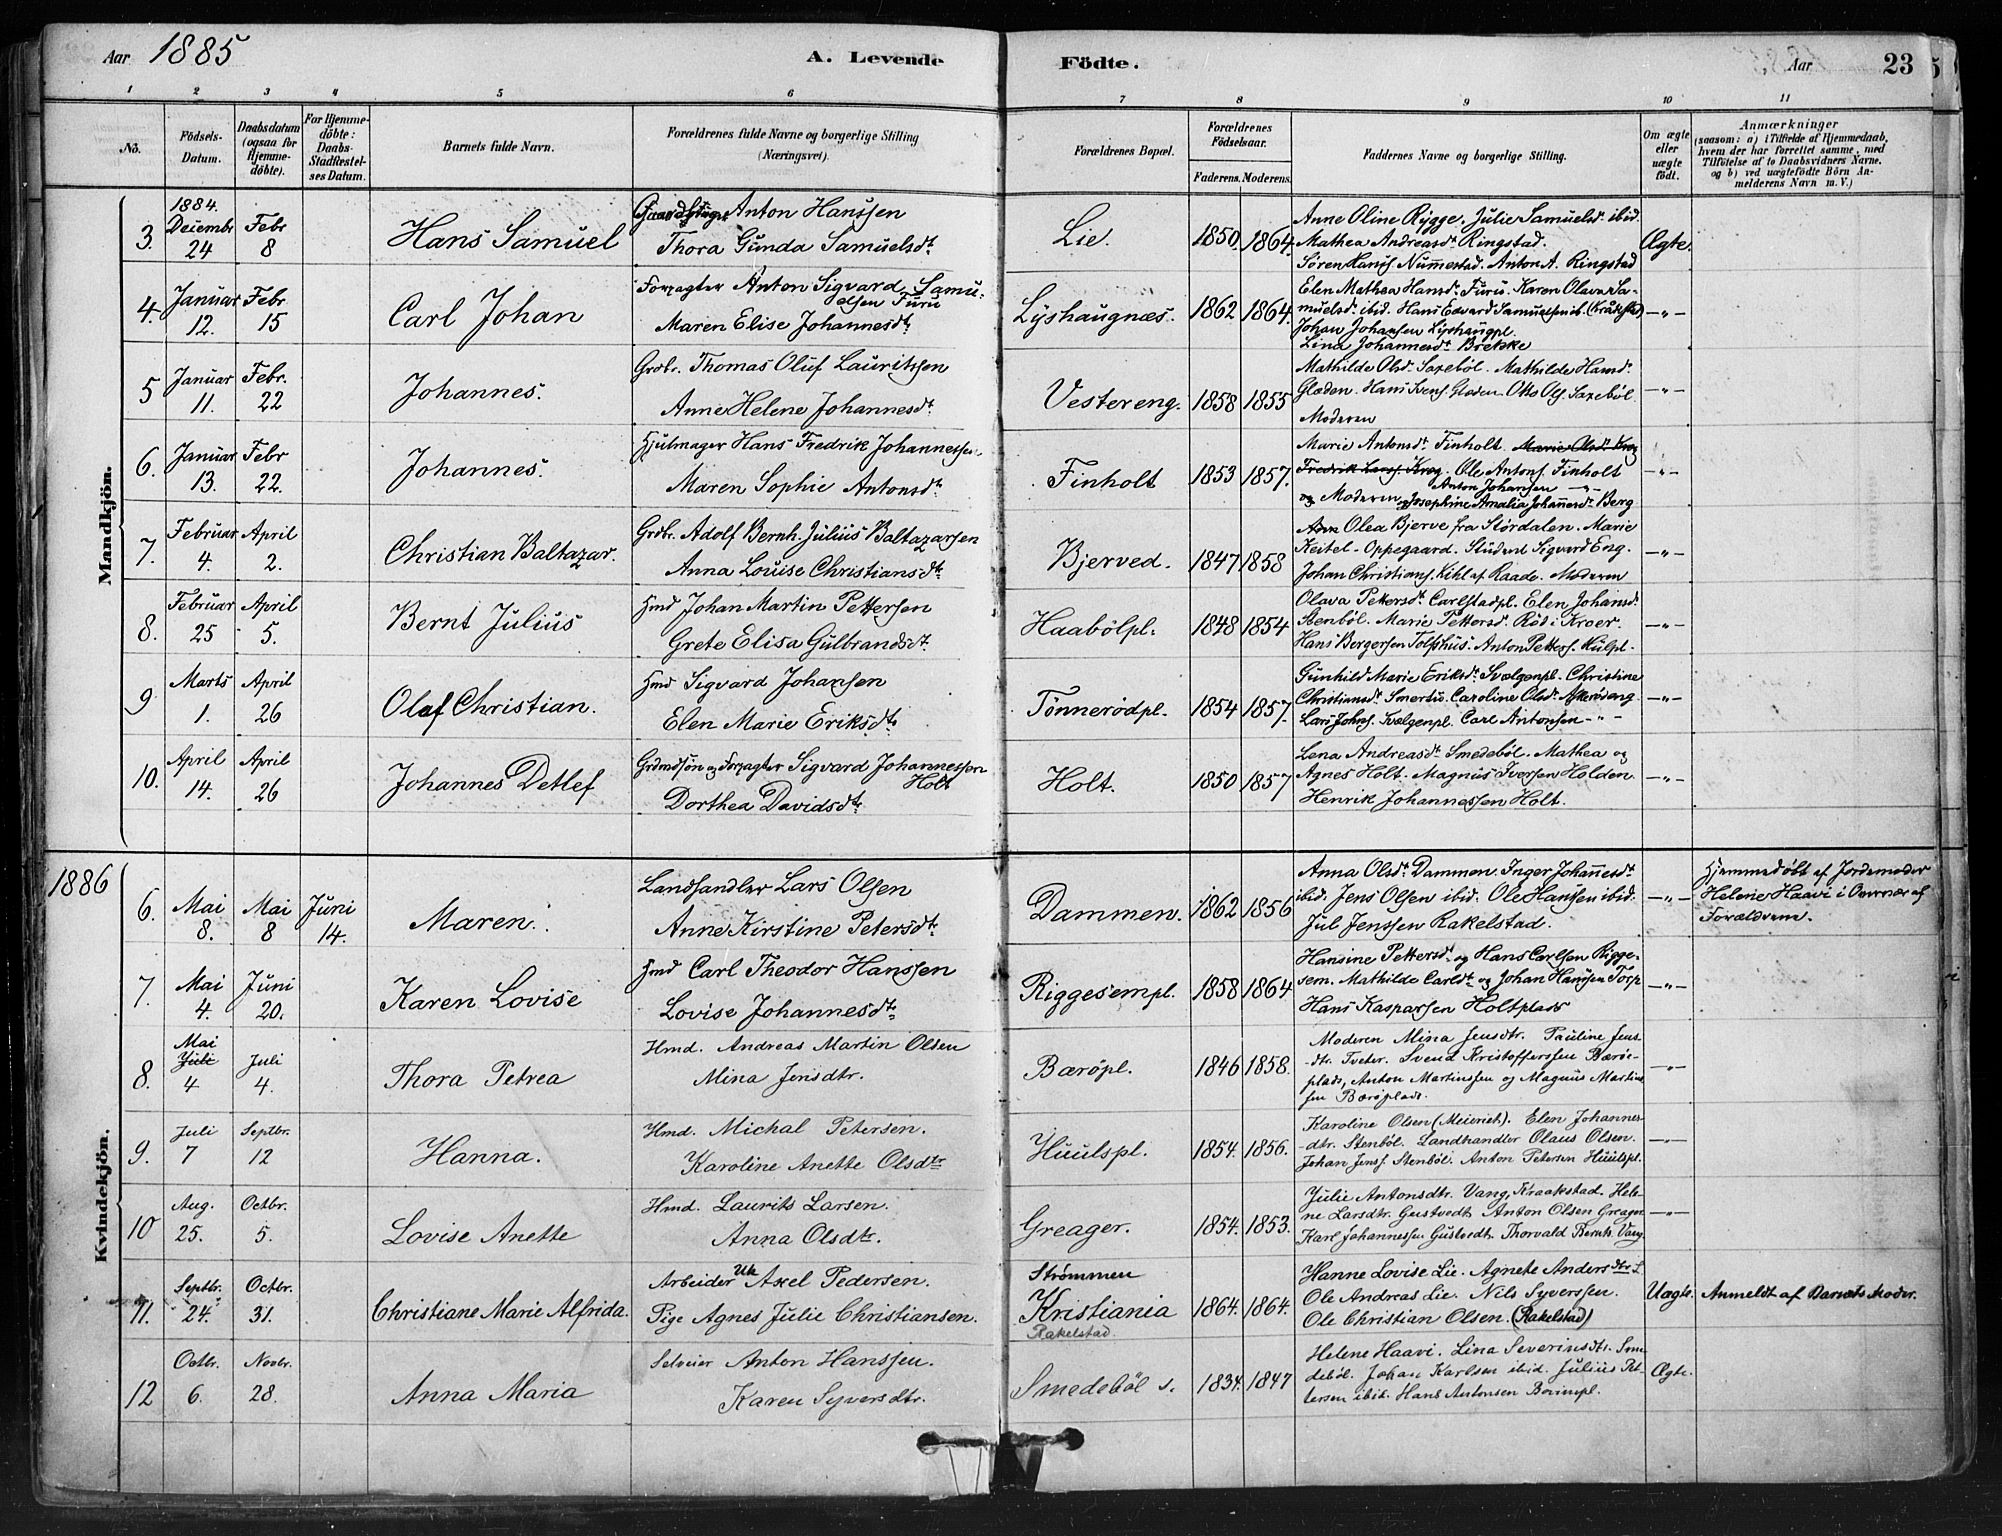 Aar 1885 A. Levende Födte. Aar 23
1 2 3 4 5 6 7 8 9 10 11
No.
Födsels-Datum.
Daabsdatum (ogsaa for Hjemme-döbte).
For Hjemme-döbte: Daabs-Stadfæstel-ses Datum.
Barnets fulde Navn.
Forældrenes fulde Navne og borgerlige Stilling (Næringsvei).
Forældrenes Bopæl.
Forældrenes Födselsaar. Faderens. Moderens.
Faddernes Navne og borgerlige Stilling.
Om ægte eller uægte födt.
Anmærkninger
(saasom: a) i Tilfælde af Hjemmedaab, hvem der har forrettet samme, med Tilföielse af to Daabsvidners Navne. og b) ved uægtefödte Börn An-melderens Navn m. V.)
Mandkjön.
3. 1884. Decembr 24 Febr 8 Hans Samuel
Gaardbruger Anton Hanssen
Thora Gunda Samuelsdt.
Lie. 1850 1864.
Anne Oline Rygge. Julie Samuelsdt ibid.
Mathea Andreasdt. Ringstad.
Sören Hanss. Nummestad. Anton A. Ringstad
Ægte.
4. Januar 12. Febr 15 Carl Johan
Forpagter Anton Sigvard Samu-
elsen Furu
Maren Elise Johannesdt.
Lyshaugnæs. 1862 1864.
Elen Mathea Hansdt. Furu. Karen Olava Sa-
muelsdt. ibid. Hans Edvard Samuelsen ib. (Kråkstad)
Johan Johansen Lyshaugpl.
Lina Johannesdt. Brekke
—"—
5 Januar 11. Febr. 22 Johannes.
Grdbr. Thomas Oluf Lauritssen
Anne Helene Johannesdt.
Vestereng. 1858 1855
Mathilde Olsdt. Saxeböl. Mathilde Hansdt.
Glæden. Hans Svens. Glæden. Otto Ols. Saxeböl.
Moderen
—"—
6. Januar 13. Febr 22. Johannes.
Hjulmager Hans Fredrik Johannessen.
Maren Sophie Antonsdt.
Finholt 1853 1857.
Marie Antonsdt. Finholt. Marie Olsdt. Krog
Fredrik Larss. Krog. Ole Antons. Finholt
Anton Johansen —"—
og Moderen og Josephine Amalia Johannesdt. Berg
—"—
7. Februar 4. April 2. Christian Baltazar.
Grdbr. Adolf Bernh. Julius Baltazarsen
Anna Louise Christiansdt.
Bjerved. 1847 1858
Olea Bjerve fra Stördalen. Marie
Keitel - Oppegaard. Student Sigvard Eng.
Johan Christians. Kihl af Raade. Moderen
—"—
8. Februar 25 April 5. Bernt Julius
Hmd Johan Martin Pettersen
Grete Elisa Gulbrandsdt.
Haabölpl. 1848 1854
Olava Pettersdt. Carlstadpl. Elen Johansdt.
Stenböl. Marie Pettersdt. Röd i Kroer.
Hans Bergersen Tolfshus. Anton Petters. Kulpl.
—"—
9 Marts 1. April 26 Olaf Christian.
Hmd Sigvard Johansen
Elen Marie Eriksdt.
Tönnerödpl. 1854 1857.
Gunhild Marie Eriksdt. Svælgenpl. Christine
Christiansdt. Smertu. Caroline Olsdt. Askeröeng
Lars Johns. Svælgenpl. Carl Antonsen —"—
—"—
10. April 14. April 26 Johannes Detlef
Grdmdsön og Forpagter Sigvard Johannessen
Holt
Dorthea Davidsdt.
Holt. 1850 1857
Lena Andreasdt. Smedeböl. Mathea og
Agnes Holt. Magnus Iversen Holden
Henrik Johannessen Holt.
—"—
1886
Kvindekjön.
6. Mai 8. Mai 8 Juni 14. Maren.
Landhandler Lars Olsen
Anne Kirstine Petersdt.
Dammen. 1862 1856
Anna Olsdt. Dammen. Inger Johannesdt.
ibid. Jens Olsen ibid. Ole Hansen ibid.
Jul Jenssen Rakelstad.
—"—
Hjemmedöbt af Jordemoder
Helene Haavi i Overvær af
Forældrene.
7. Mai 4. Juni 20. Karen Lovise
Hmd Carl Theodor Hanssen
Lovise Johannesdt.
Riggesempl. 1858 1864
Hansine Pettersdt. og Hans Carlsen Rigge-
sem. Mathilde Carlsdt. og Johan Hanssen Torp
Hans Kaspersen Holtplads
—"—
8. Mai Juli 4 Juli 4. Thora Petrea
Hmd. Andreas Martin Olsen
Mina Jensdtr.
Bæröpl. 1846 1858.
Moderen Mina Jensdtr. Pauline Jens
dtr. Tveter. Svend Kristofferssen Bærö-
plads, Anton Martinssen og Magnus Martins
sen Bæröplads.
—"—
9. Juli 7 Septbr. 12 Hanna.
Hmd. Michal Petersen.
Karoline Anette Olsdtr
Huulspl. 1854. 1856.
Karoline Olsen (Meieriet). Elen Johannes-
dtr. Stenböl. Landhandler Olaus Olsen.
Johan Jenss. Stenböl. Anton Petersen Huulspl.
—"—
10 Aug. 25. Octbr. 5. Lovise Anette
Hmd. Laurits Larsen.
Anna Olsdtr.
Greager. 1854. 1853.
Julie Antonsdtr. Vang, Kraakstad. Hele-
ne Larsdtr. Gustvedt. Anton Olsen Greager
Karl Johannessen Gustvedt. Thorvald Berntss. Vang.
—"—
11. Septbr. 24. Octbr. 31. Christiane Marie Alfrida.
Arbeider Uk Axel Pedersen.
Pige Agnes Julie Christiansen.
Strömmen
Kristiania
Rakelstad.
1864. 1864.
Hanne Lovise Lie. Agnete Andersdtr L
Ole Andreas Lie. Nils Syverssen.
Ole Christian Olsen. (Rakelstad)
Uægte. Anmeldt af Barnets Moder.
12 Octbr. 6. Novbr. 28. Anna Maria
Selveier Anton Hanssen.
Karen Syversdtr.
Smedeböl s. 1834. 1847
Helene Haavi. Lina Severinsdtr. Sme
deböl. Johan Karlsen ibid. Julius Pet-
tersen ibid. Hans Antonsen
Ægte.